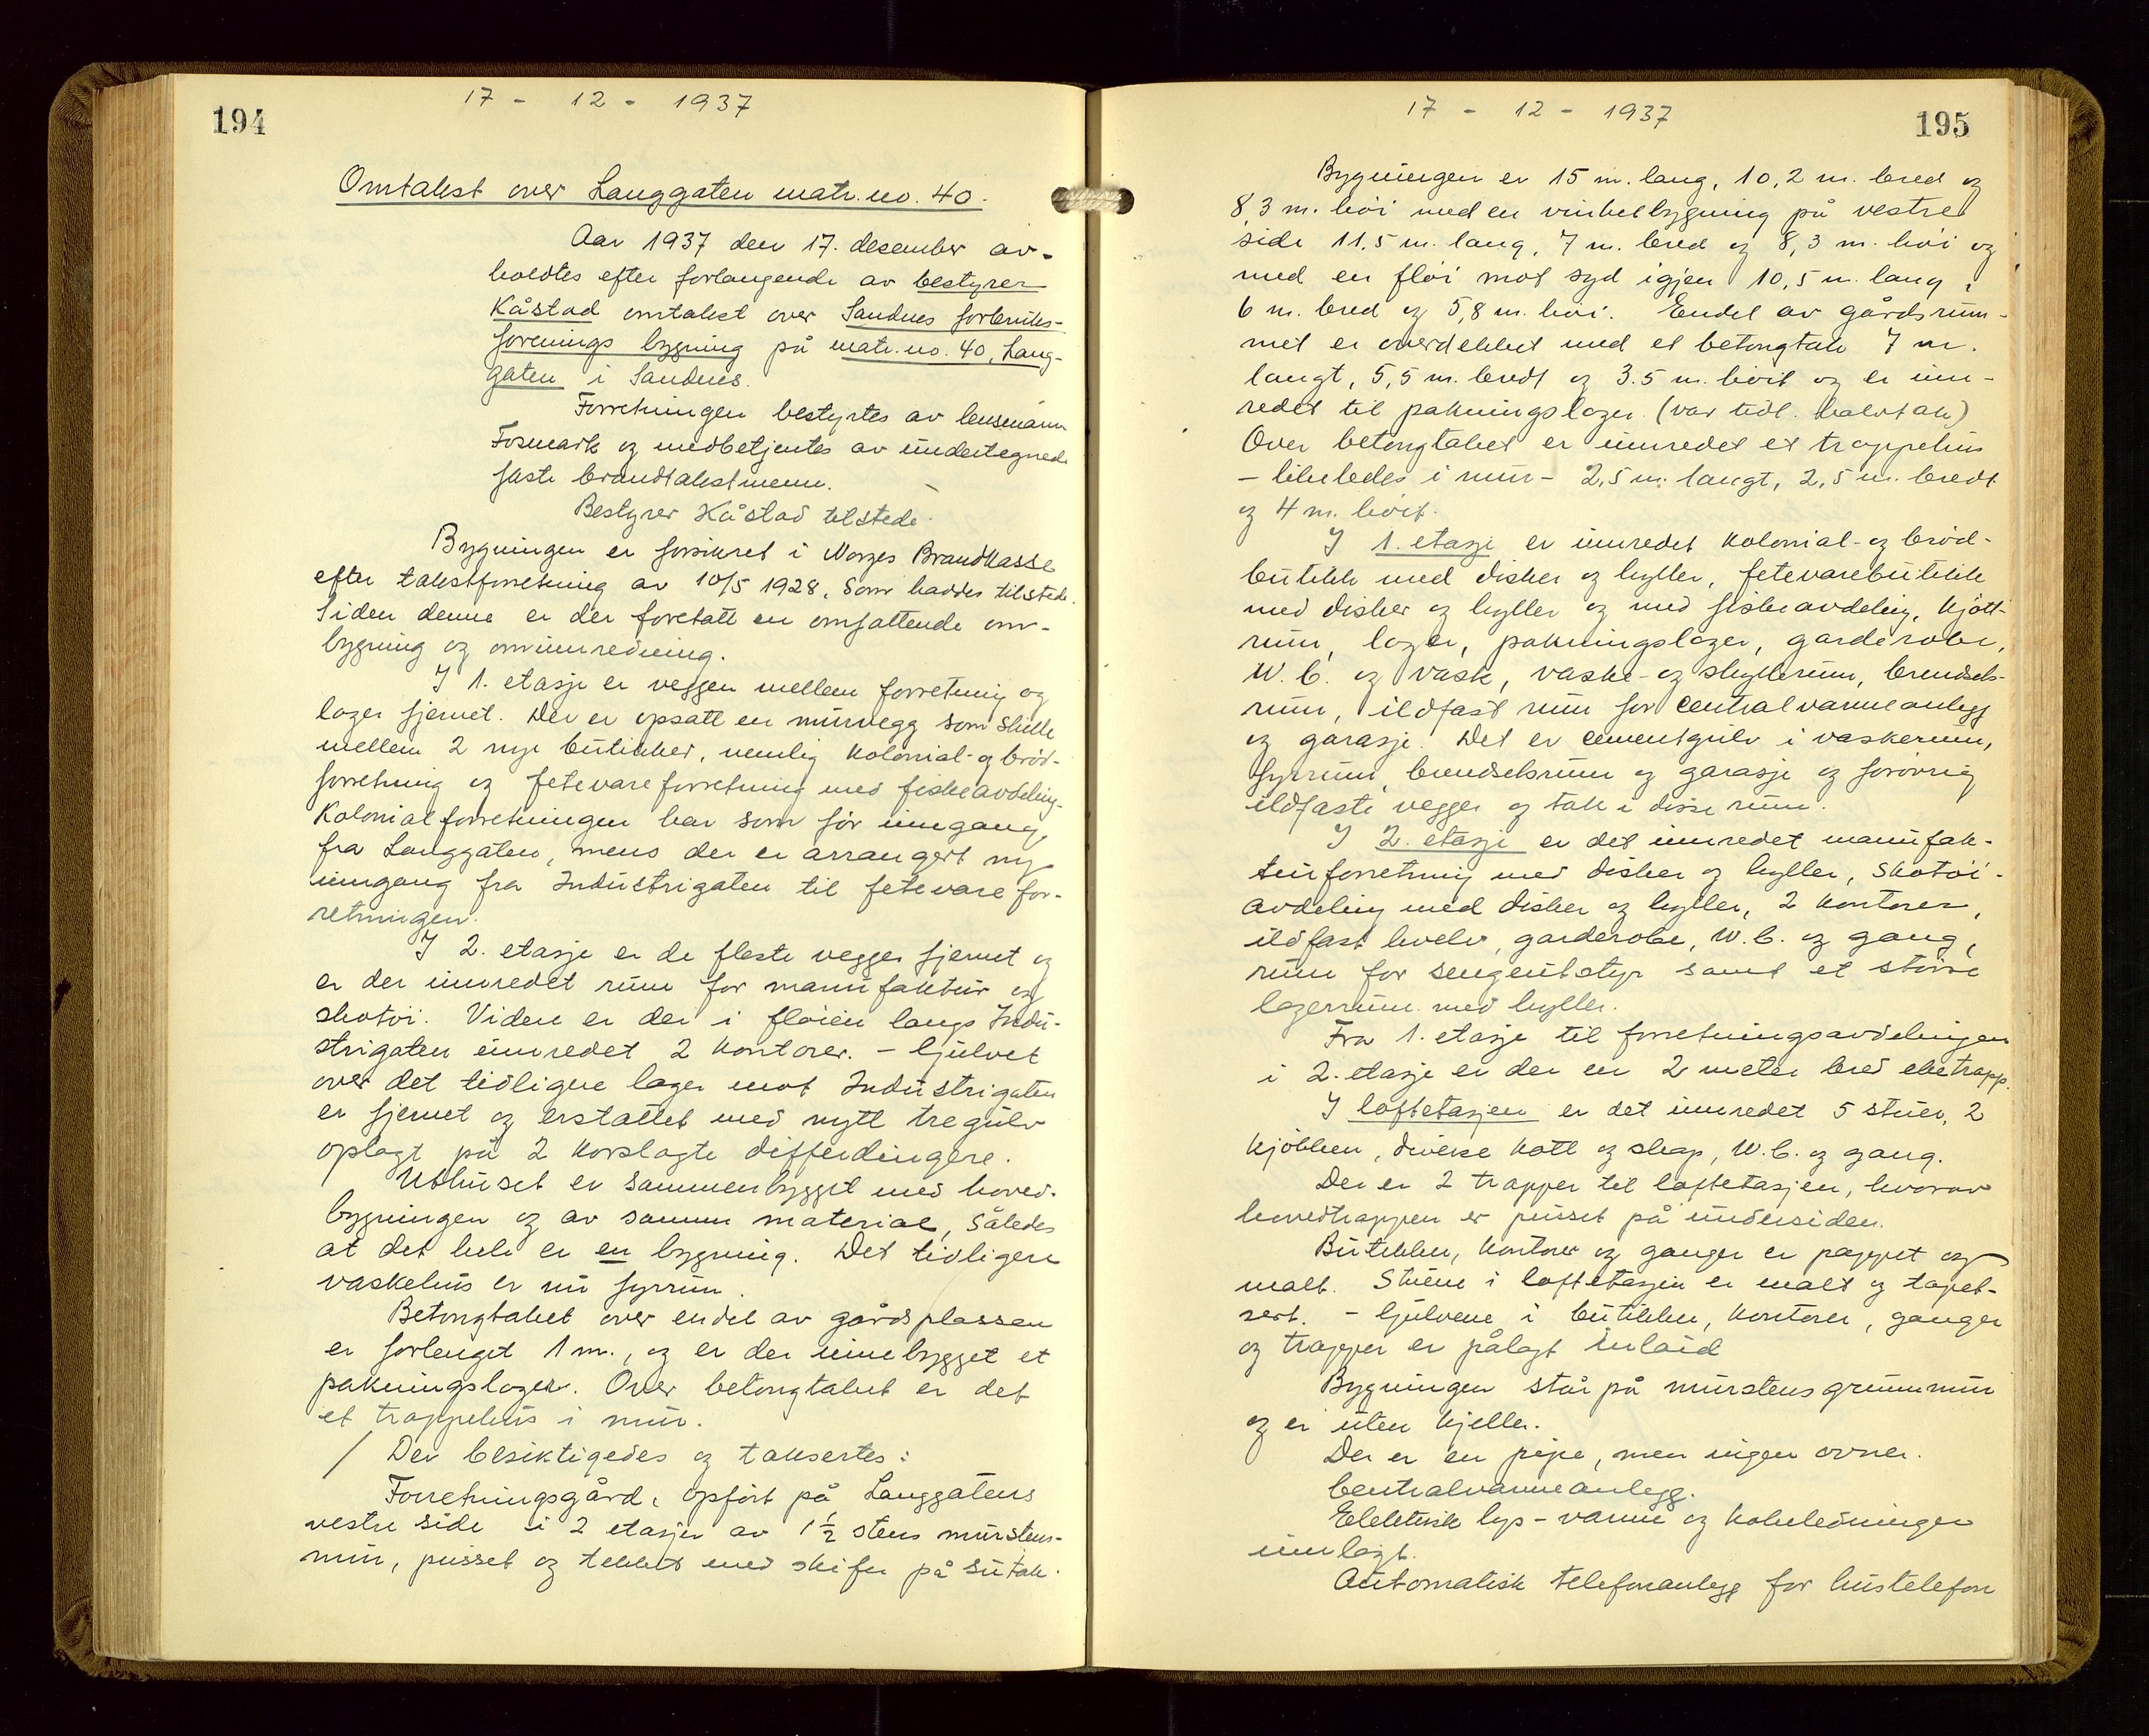 194
17 - 12 - 1937
Omtakst over Langgaten matr. no. 40.
Aar 1937 den 17. desember av-
holdtes efter forlangende av bestyrer
Kåstad omtakst over Sandnes forbruks-
forenings bygning på matr. no. 40, Lang-
gaten i Sandnes.
Forretningen bestyrtes av lensmann
Fosmark og medbetjentes av undertegnede
faste brandtakstmenn.
Bestyrer Kåstad tilstede.
Bygningen er forsikret i Norges Brandkasse
efter takstforretning av 10/5 1928, som haddes tilstede.
Siden denne er der foretatt en omfattende om-
bygning og ominnredning.
I 1. etasje er veggen mellem forretning og
lager fjernet. Der er opsatt en murvegg som skille
mellem 2 nye butikker, nemlig kolonial- og brød-
forretning og fetevareforretning med fiskeavdeling.
Kolonialforretningen har som før inngang
fra Langgaten, mens der er arrangert ny
inngang fra Industrigaten til fetevarefor-
retningen.
I 2. etasje er de fleste vegger fjernet og
er der innredet rum for manufaktur og
skotøi. Videre er der i fløien langs Indu-
strigaten innredet 2 kontorer. - Gulvet
over det tidligere lager mot Industrigaten
er fjernet og erstattet med nytt tregulv
oplagt på 2 korslagte differdingere.
Uthuset er sammenbygget med hoved-
bygningen og av samme material, således
at det hele er en bygning. Det tidligere
vaskehus er nu fyrrum.
Betongtaket over endel av gårdsplassen
er forlenget 1 m., og er der innebygget et
pakningslager. Over betongtaket er det
et trappehus i mur.
/ Der besiktigedes og taksertes:
Forretningsgård, opført på Langgatens
vestre side i 2 etasjer av 1½ stens murstens-
mur, pusset og tekket med skifer på sutak.
17 - 12 - 1937
195
Bygningen er 15 m. lang, 10,2 m. bred og
8,3 m. høi med en vinkelbygning på vestre
side 11,5 m. lang, 7 m. bred og 8,3 m. høi og
med en fløi mot syd igjen 10,5 m. lang,
6 m. bred og 5,8 m. høi. Endel av gårdsrum-
met er overdekket med et betongtak 7 m.
langt, 5,5 m. bredt og 3.5 m. høit og er inn-
redet til pakningslager. (var tidl. halvtak)
Over betongtaket er innredet et trappehus
- likeledes i mur - 2,5 m. langt, 2,5 m. bredt
og 4 m. høit.
I 1. etasje er innredet kolonial- og brød-
butikk med disker og hyller, fetevarebutikk
med disker og hyller og med fiskeavdeling, kjøtt-
rum, lager, pakningslager, garderobe,
W.C. og vask, vaske- og skyllerum, brendsels-
rum, ildfast rum for centralvarmeanlegg
og garasje. Det er cementgulv i vaskerum,
fyrrum, brendselsrum og garasje og forøvrig
ildfaste vegger og tak i disse rum.
I 2. etasje er det innredet manufak-
turforretning med disker og hyller, skotøi-
avdeling med disker og hyller, 2 kontorer,
ildfast hvelv, garderobe, W.C. og gang,
rum for sengeutstyr samt et større
lagerrum med hyller.
Fra 1. etasje til forretningsavdelingen
i 2. etasje er der en 2 meter bred eketrapp.
I loftetasjen er det innredet 5 stuer, 2
kjøkken, diverse kott og skap, W.C. og gang.
Der er 2 trapper til loftetasjen, hvorav
hovedtrappen er pusset på undersiden.
Butikker, kontorer og ganger er pappet og
malt. Stuene i loftetasjen er malt og tapet-
sert. - Gulvene i butikker, kontorer, ganger
og trapper er pålagt inlaid
Bygningen står på murstensgrunnmur
og er uten kjeller.
Der er en pipe, men ingen ovner.
Centralvarmeanlegg.
Elektrisk lys- varme og kokeledninger
innlagt.
Automatisk telefonanlegg for hustelefon